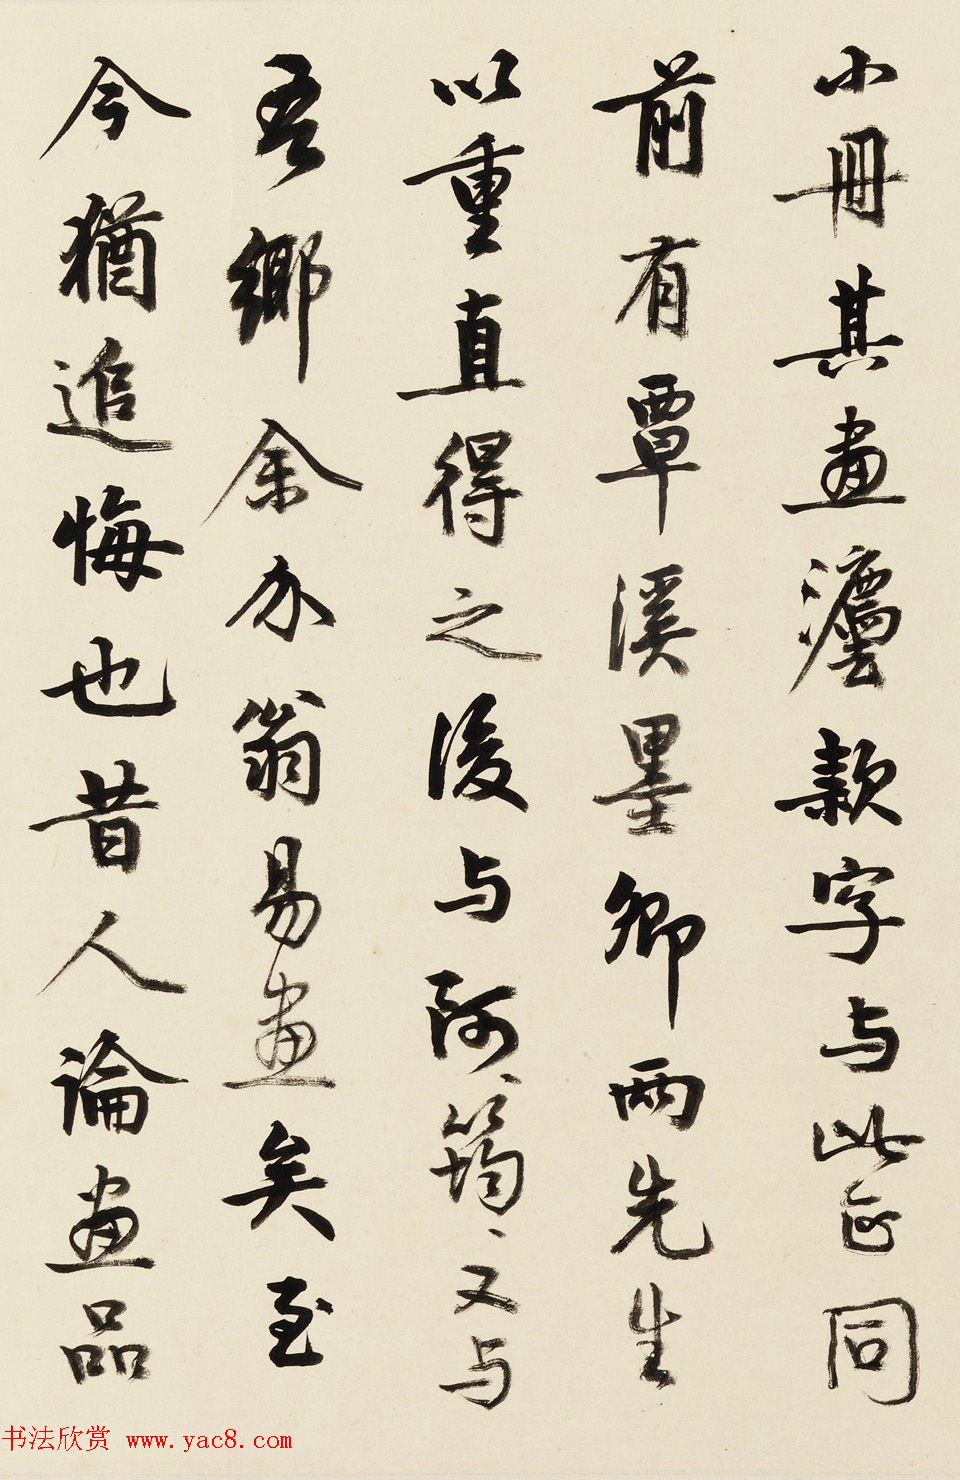 小冊其畫灋款字与此正同
前有覃溪墨卿兩先生
以重直得之後与阿筠、又与
吾鄉余亦翁易畫矣至
今猶追悔也昔人論畫品
书法欣赏 www.yac8.com